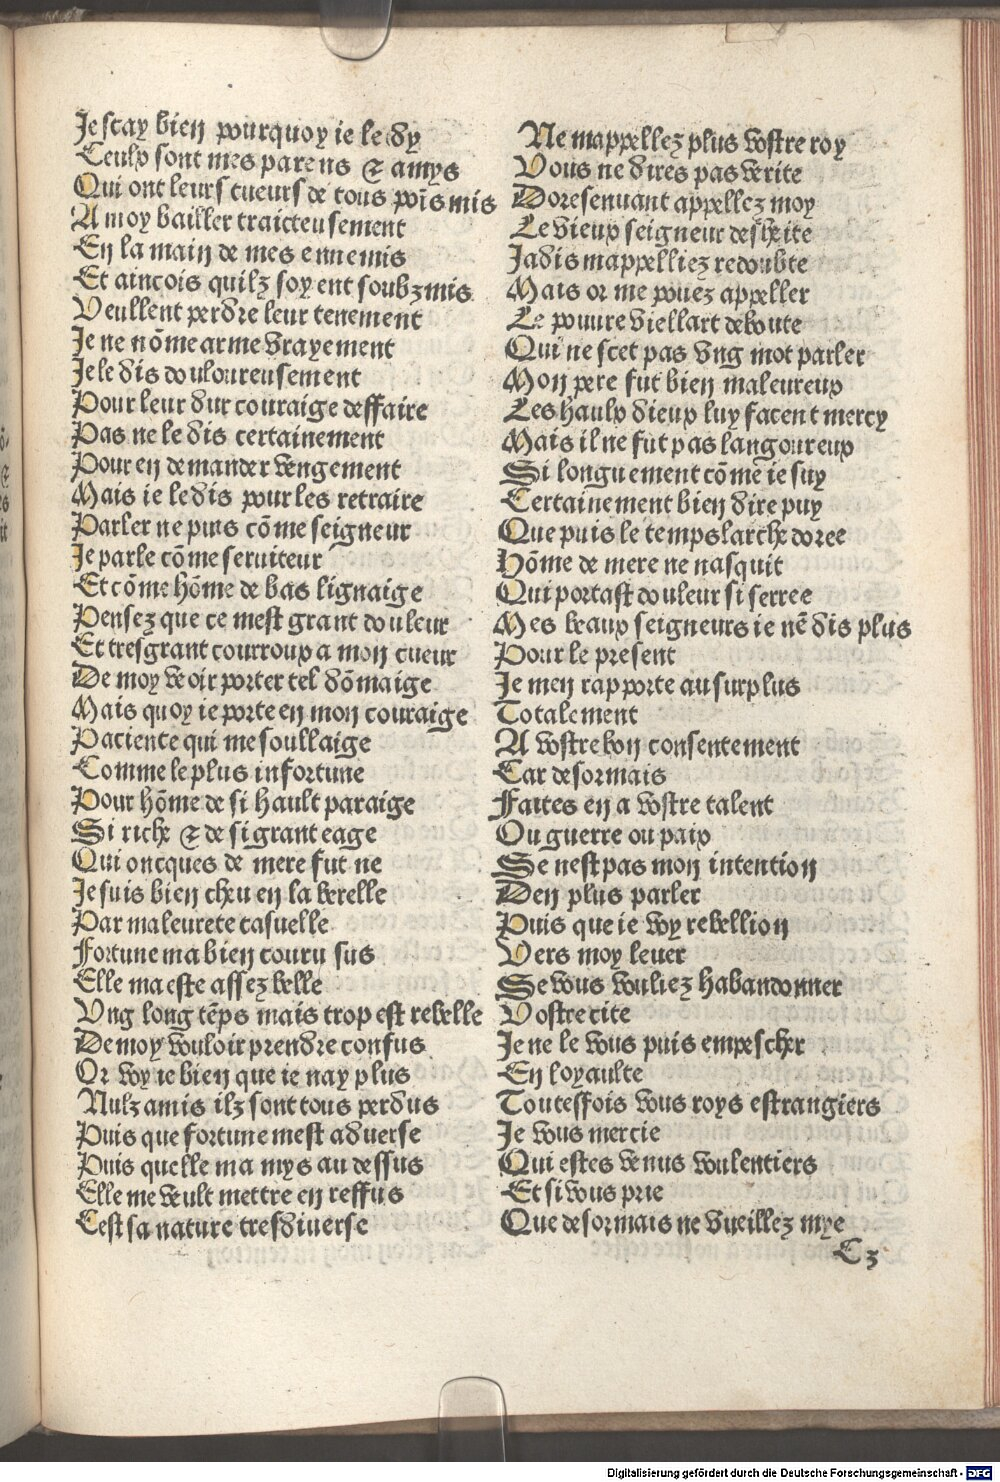 Je scay bien pourquoy ie le dy
Ceulx sont mes parens & amys
Qui ont leurs cueurs de tous poĩs mis
A moy bailler traicteusement
En la main de mes ennemis
Et aincois quilz soyent soubzmis
Veullent perdre leur tenement
Je ne nõme arme vrayement
Je le dis douloureusement
Pour leur dur couraige deffaire
Pas ne le dis certainement
Pour en demander vengement
Mais ie le dis pour les retraire
Parler ne puis cõme seigneur
Je parle cõme seruiteur
Et cõme hõme de bas lignaige
Pensez que ce mest grant douleur
Et tresgrant courroux a mon cueur
De moy veoir porter tel dõmaige
Mais quoy ie porte en mon couraige
Pacience qui me soullaige
Comme le plus infortune
Pour hõme de si hault paraige
Si riche & de si grant eage
Qui oncques de mere fut ne
Je suis bien cheu en la berelle
Par maleurete casuelle
Fortune ma bien couru sus
Elle ma este assez belle
Vng long tẽps mais trop est rebelle
De moy vouloir prendre confus
Or voy ie bien que ie nay plus
Nulz amis ilz sont tous perdus
Puis que fortune mest aduerse
Puis quelle ma mys au dessus
Elle me veult mettre en reffus
Cest sa nature tresdiuerse
Ne mappellez plus vostre roy
Vous ne dires pas verite
Doresenuant appellez moy
Le vieux seigneur desherite
Jadis mappelliez redoubte
Mais or me pouez appeller
Le pouure viellart deboute
Qui ne scet pas vng mot parler
Mon pere fut bien maleureux
Les haulx dieux luy facent mercy
Mais il ne fut pas langoureux
Si longuement cõme ie suy
Certainement bien dire puy
Que puis le temps larche doree
Hõme de mere ne nasquit
Qui portast douleur si serree
Mes beaux seigneurs ie nẽ dis plus
Pour le present
Je men rapporte au surplus
Totalement
A vostre bon consentement
Car desormais
Faites en a vostre talent
Ou guerre ou paix
Se nest pas mon intention
Den plus parler
Puis que ie voy rebellion
Vers moy leuer
Se vous vouliez habandonner
Vostre cite
Je ne le vous puis empescher
En loyaulte
Toutesfois vous roys estrangiers
Je vous mercie
Qui estes venus voulentiers
Et si vous prie
Que desormais ne vueillez mye
C3
Digitalisierung gefördert durch die Deutsche Forschungsgemeinschaft - DFG